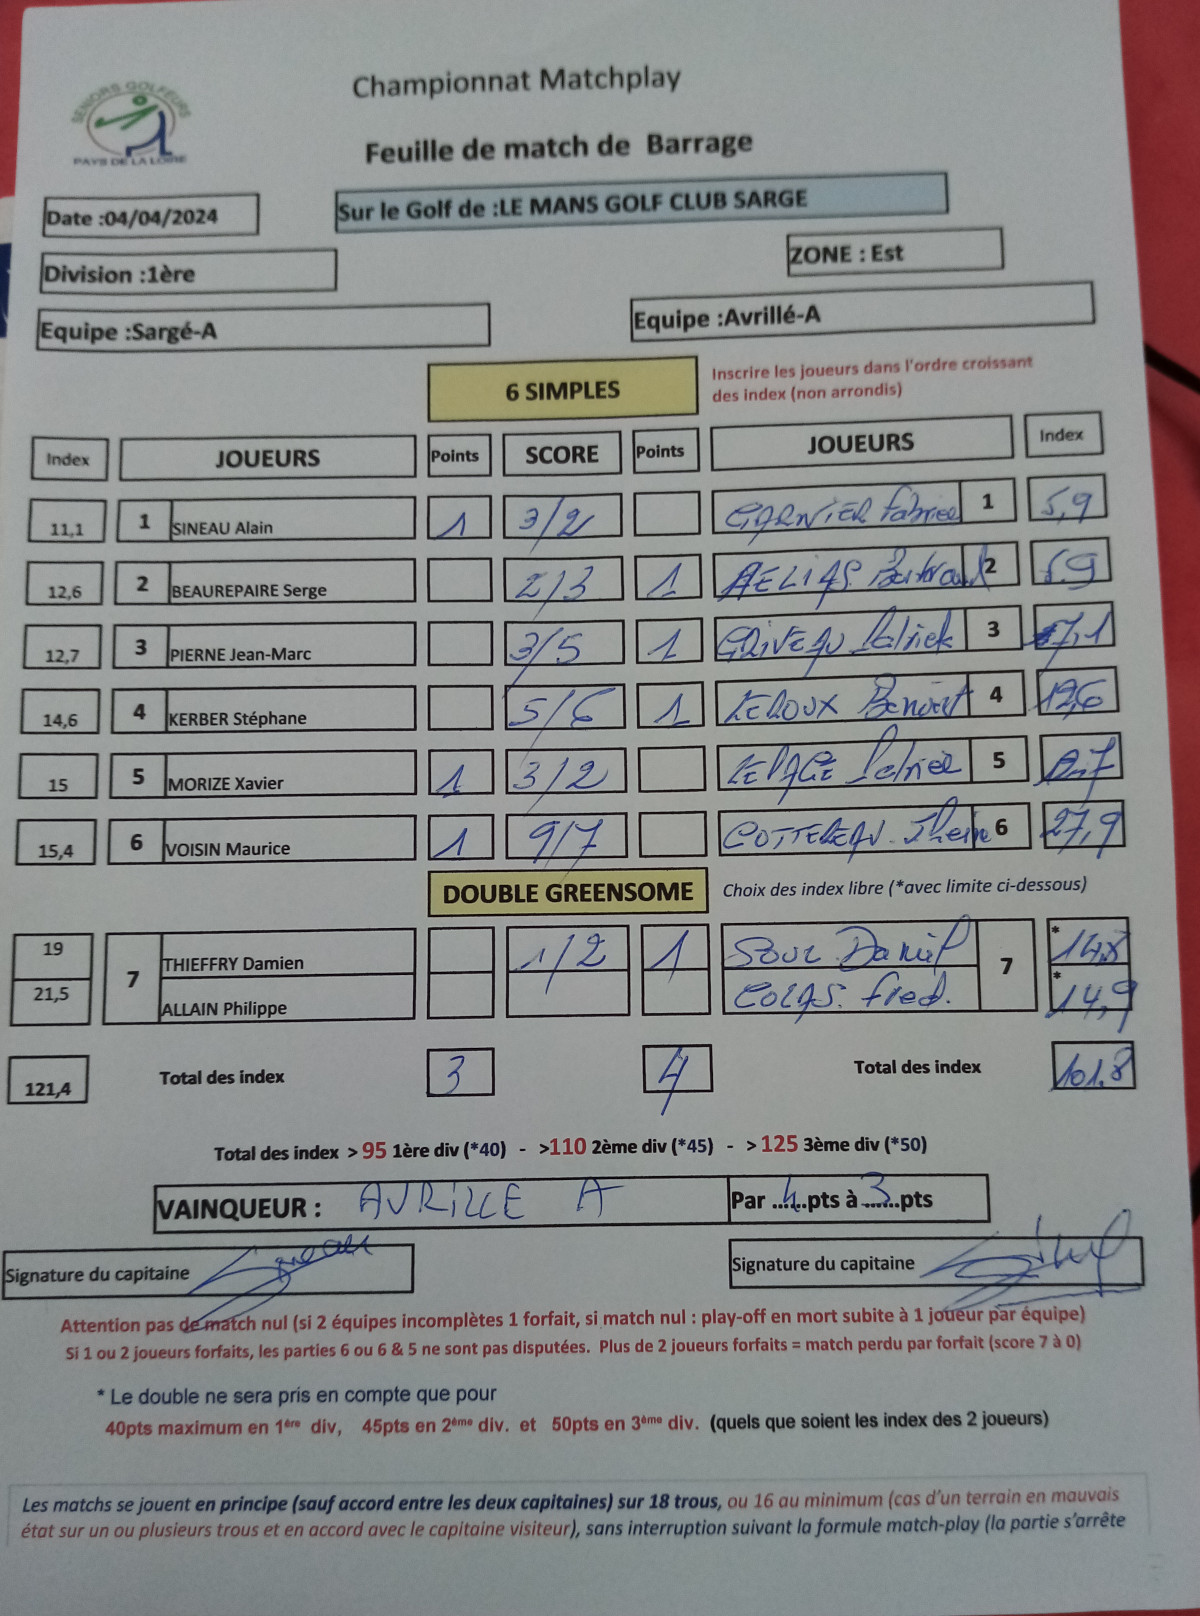 Championnat Matchplay
SENIORS GOLFEURS
PAYS DE LA LOIRE
Feuille de match de Barrage
Date :04/04/2024
Sur le Golf de :LE MANS GOLF CLUB SARGE
Division :1ère
ZONE : Est
Equipe :Sargé-A
Equipe :Avrillé-A
6 SIMPLES
Inscrire les joueurs dans l'ordre croissant
des index (non arrondis)
Index JOUEURS Points SCORE Points JOUEURS Index
11,1 1 SINEAU Alain 1 3/2 GARNIER Fabrice 1 5,9
12,6 2 BEAUREPAIRE Serge 2/3 1 AELIAS Bertrand 2 5.9
12,7 3 PIERNE Jean-Marc 3/5 1 GRIVEAU Patrick 3 7,1
14,6 4 KERBER Stéphane 5/6 1 LEROUX Benoit 4 12,6
15 5 MORIZE Xavier 1 3/2 LEPAGE Patrick 5
15,4 6 VOISIN Maurice 1 9/7 COTTEREAU 6 27,9
DOUBLE GREENSOME
Choix des index libre (*avec limite ci-dessous)
19 7 THIEFFRY Damien 1/2 1 Daniel 7 * 14,8
21,5 ALLAIN Philippe COLAS. Fred. * 14,9
121,4 Total des index 3 4 Total des index 101.8
Total des index > 95 1ère div (*40) - >110 2ème div (*45) - > 125 3ème div (*50)
VAINQUEUR : AVRILLE A Par ..4..pts à ..3..pts
Signature du capitaine
Signature du capitaine
Attention pas de match nul (si 2 équipes incomplètes 1 forfait, si match nul : play-off en mort subite à 1 joueur par équipe)
Si 1 ou 2 joueurs forfaits, les parties 6 ou 6 & 5 ne sont pas disputées. Plus de 2 joueurs forfaits = match perdu par forfait (score 7 à 0)
* Le double ne sera pris en compte que pour
40pts maximum en 1ère div, 45pts en 2ème div. et 50pts en 3ème div. (quels que soient les index des 2 joueurs)
Les matchs se jouent en principe (sauf accord entre les deux capitaines) sur 18 trous, ou 16 au minimum (cas d'un terrain en mauvais
état sur un ou plusieurs trous et en accord avec le capitaine visiteur), sans interruption suivant la formule match-play (la partie s'arrête